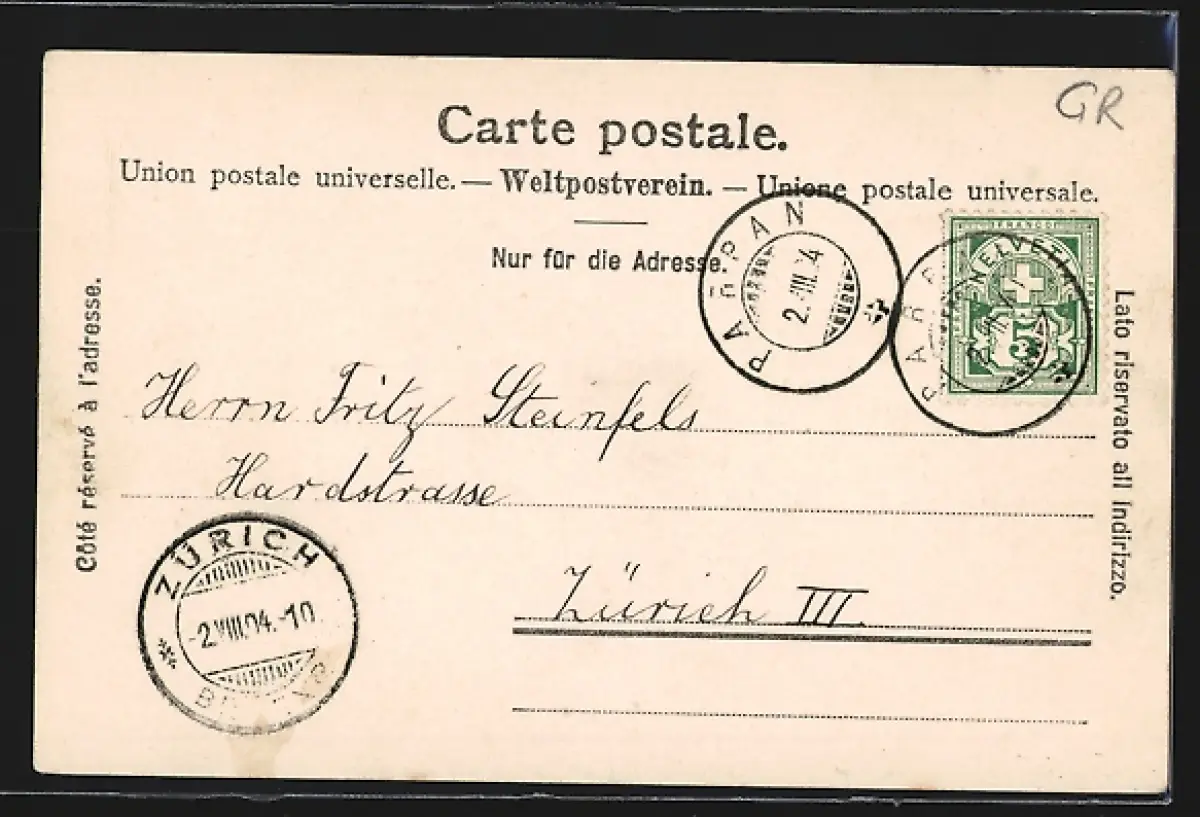 GR
Carte postale.
Union postale universelle. — Weltpostverein. — Unione postale universale.
Nur für die Adresse.
PARPAN
2.VIII.04
FRANCO
HELVETIA
5
PARPAN
Côté réservé à l'adresse.
Lato riservato all indirizzo.
Herrn Fritz Steinfels
Hardstrasse
Zürich III.
ZÜRICH
-2.VIII.04.-10